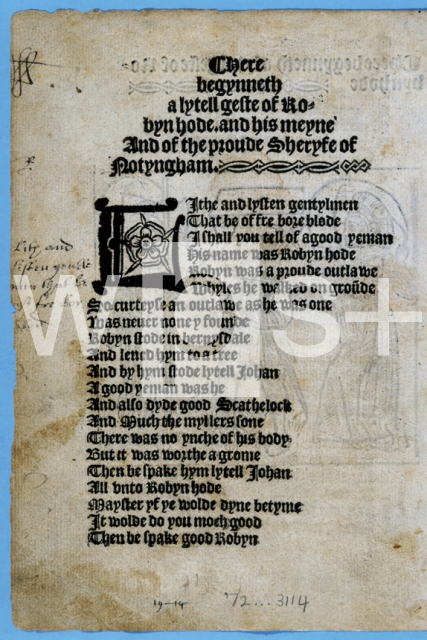 Here
begynneth
a lytell geste of Ro-
byn hode. and his meyne
And of the proude Sheryfe of
Notyngham.
Lithe and lysten gentylmen
That be of fre bore blode
I shall you tell of a good yeman
His name was Robyn hode
Robyn was a proude outlawe
Whyles he walked on groūde
So curteyse an outlawe as he was one
Was neuer none y founde
Robyn stode in bernysdale
And lened hym to a tree
And by hym stode lytell Johan
A good yeman was he
And also dyde good Scathelock
And Much the myllers sone
There was no ynche of his body.
But it was worthe a grome
Then be spake hym lytell Johan
All vnto Robyn hode
Mayster yf ye wolde dyne betyme
It wolde do you moch good
Then be spake good Robyn
and
'72 ... 3114